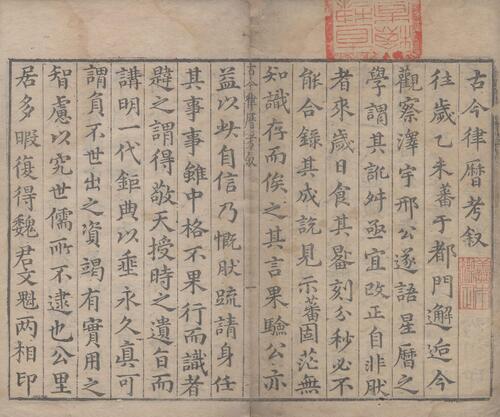 古今律曆考叙
往歲乙未蕃于都門邂逅今
觀察澤宇邢公遂語星曆之
學謂其訛舛亟宜改正自非肰
者來歲日食其晷刻分秒必不
能合錄其成說見示蕃固茫無
知識存而俟之其言果驗公亦
古今律曆考叙
一
益以此自信乃慨肰疏請身任
其事事雖中格不果行而識者
韙之謂得敬天授時之遺旨而
講明一代鉅典以垂永久眞可
謂負不世出之資竭有實用之
智慮以究世儒所不逮也公里
居多暇復得魏君文魁兩相印